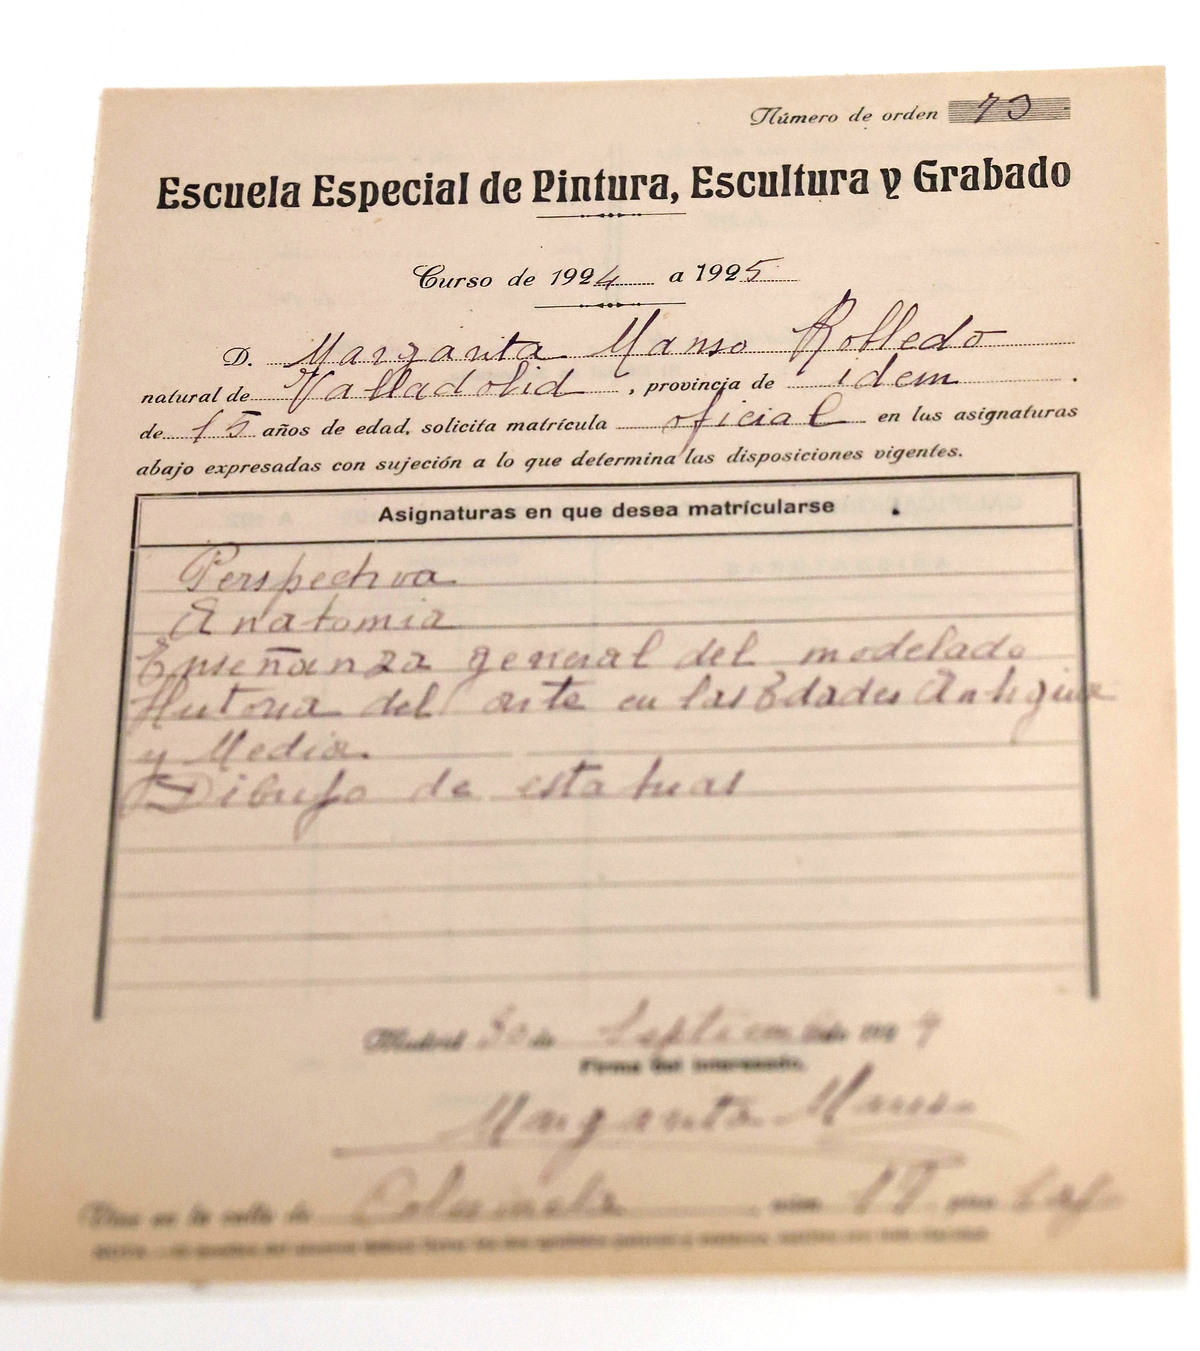 Número de orden 73
Escuela Especial de Pintura, Escultura y Grabado
Curso de 1924 a 1925
D. Margarita Manso Rolledo
natural de Valladolid , provincia de idem .
de 15 años de edad, solicita matrícula oficial en las asignaturas
abajo expresadas con sujeción a lo que determina las disposiciones vigentes.
Asignaturas en que desea matrícularse
Perspectiva
Anatomia
Enseñanza general del modelado
Historia del arte en las Edades Antigua
y Media.
Dibujo de estatuas
Madrid 30 de Septiembre de 1924
Firma del interesado,
Margarita Manso
Vive en la calle de Columela , núm. 17 piso
NOTA.